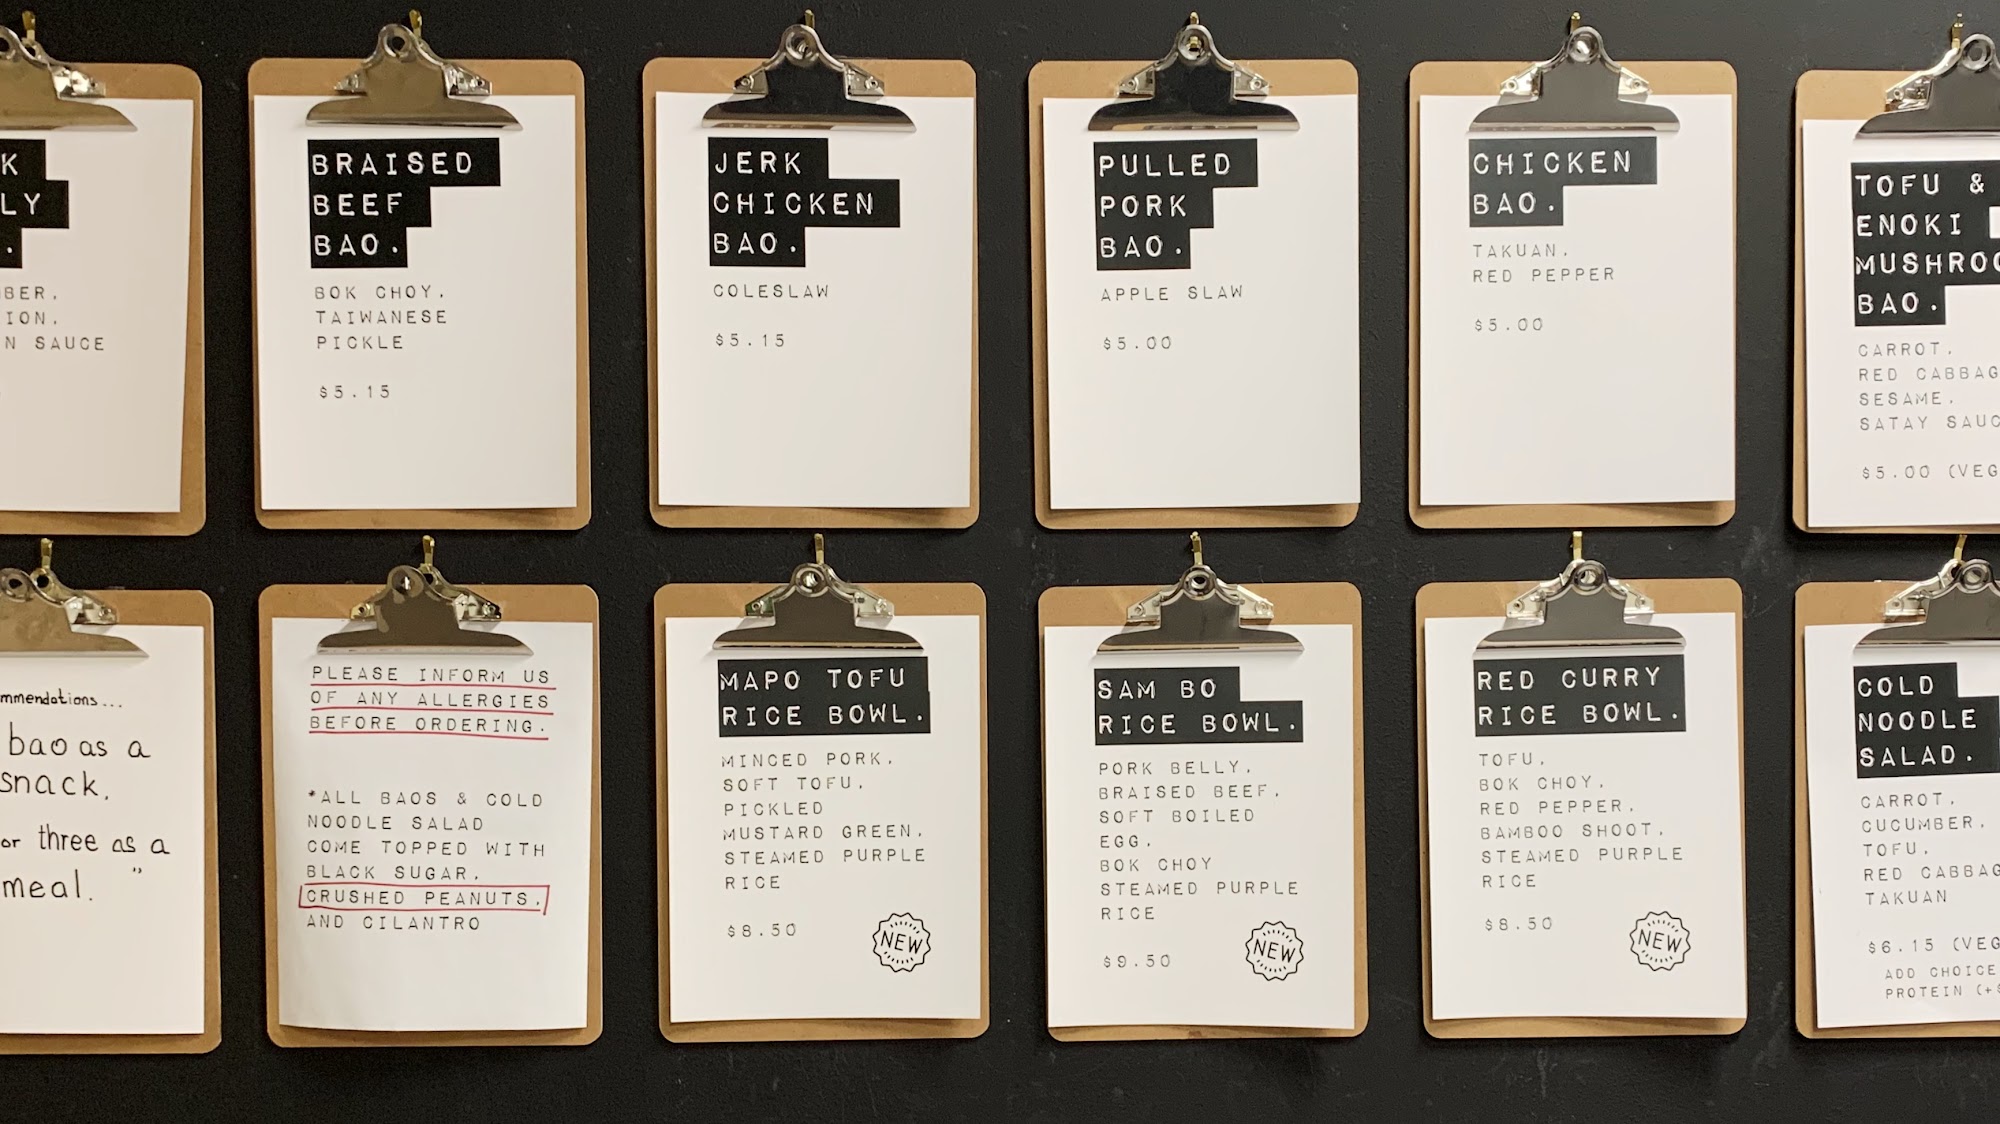 BRAISED
BEEF
BAO.
BOK CHOY,
TAIWANESE
PICKLE
$5.15
JERK
CHICKEN
BAO.
COLESLAW
$5.15
PULLED
PORK
BAO.
APPLE SLAW
$5.00
CHICKEN
BAO.
TAKUAN,
RED PEPPER
$5.00
TOFU &
ENOKI
BAO.
CARROT,
RED
SESAME,
SATAY
$5.00
SAUCE
bao as a
snack,
or three as a
meal. "
PLEASE INFORM US
OF ANY ALLERGIES
BEFORE ORDERING.
*ALL BAOS & COLD
NOODLE SALAD
COME TOPPED WITH
BLACK SUGAR,
CRUSHED PEANUTS,
AND CILANTRO
MAPO TOFU
RICE BOWL.
MINCED PORK,
SOFT TOFU,
PICKLED
MUSTARD GREEN,
STEAMED PURPLE
RICE
$8.50
NEW
SAM BO
RICE BOWL.
PORK BELLY,
BRAISED BEEF,
SOFT BOILED
EGG,
BOK CHOY
STEAMED PURPLE
RICE
$9.50
NEW
RED CURRY
RICE BOWL.
TOFU,
BOK CHOY,
RED PEPPER,
BAMBOO SHOOT,
STEAMED PURPLE
RICE
$8.50
NEW
COLD
NOODLE
SALAD.
CARROT,
CUCUMBER,
TOFU,
RED
TAKUAN
$6.15
ADD CHOICE
PROTEIN